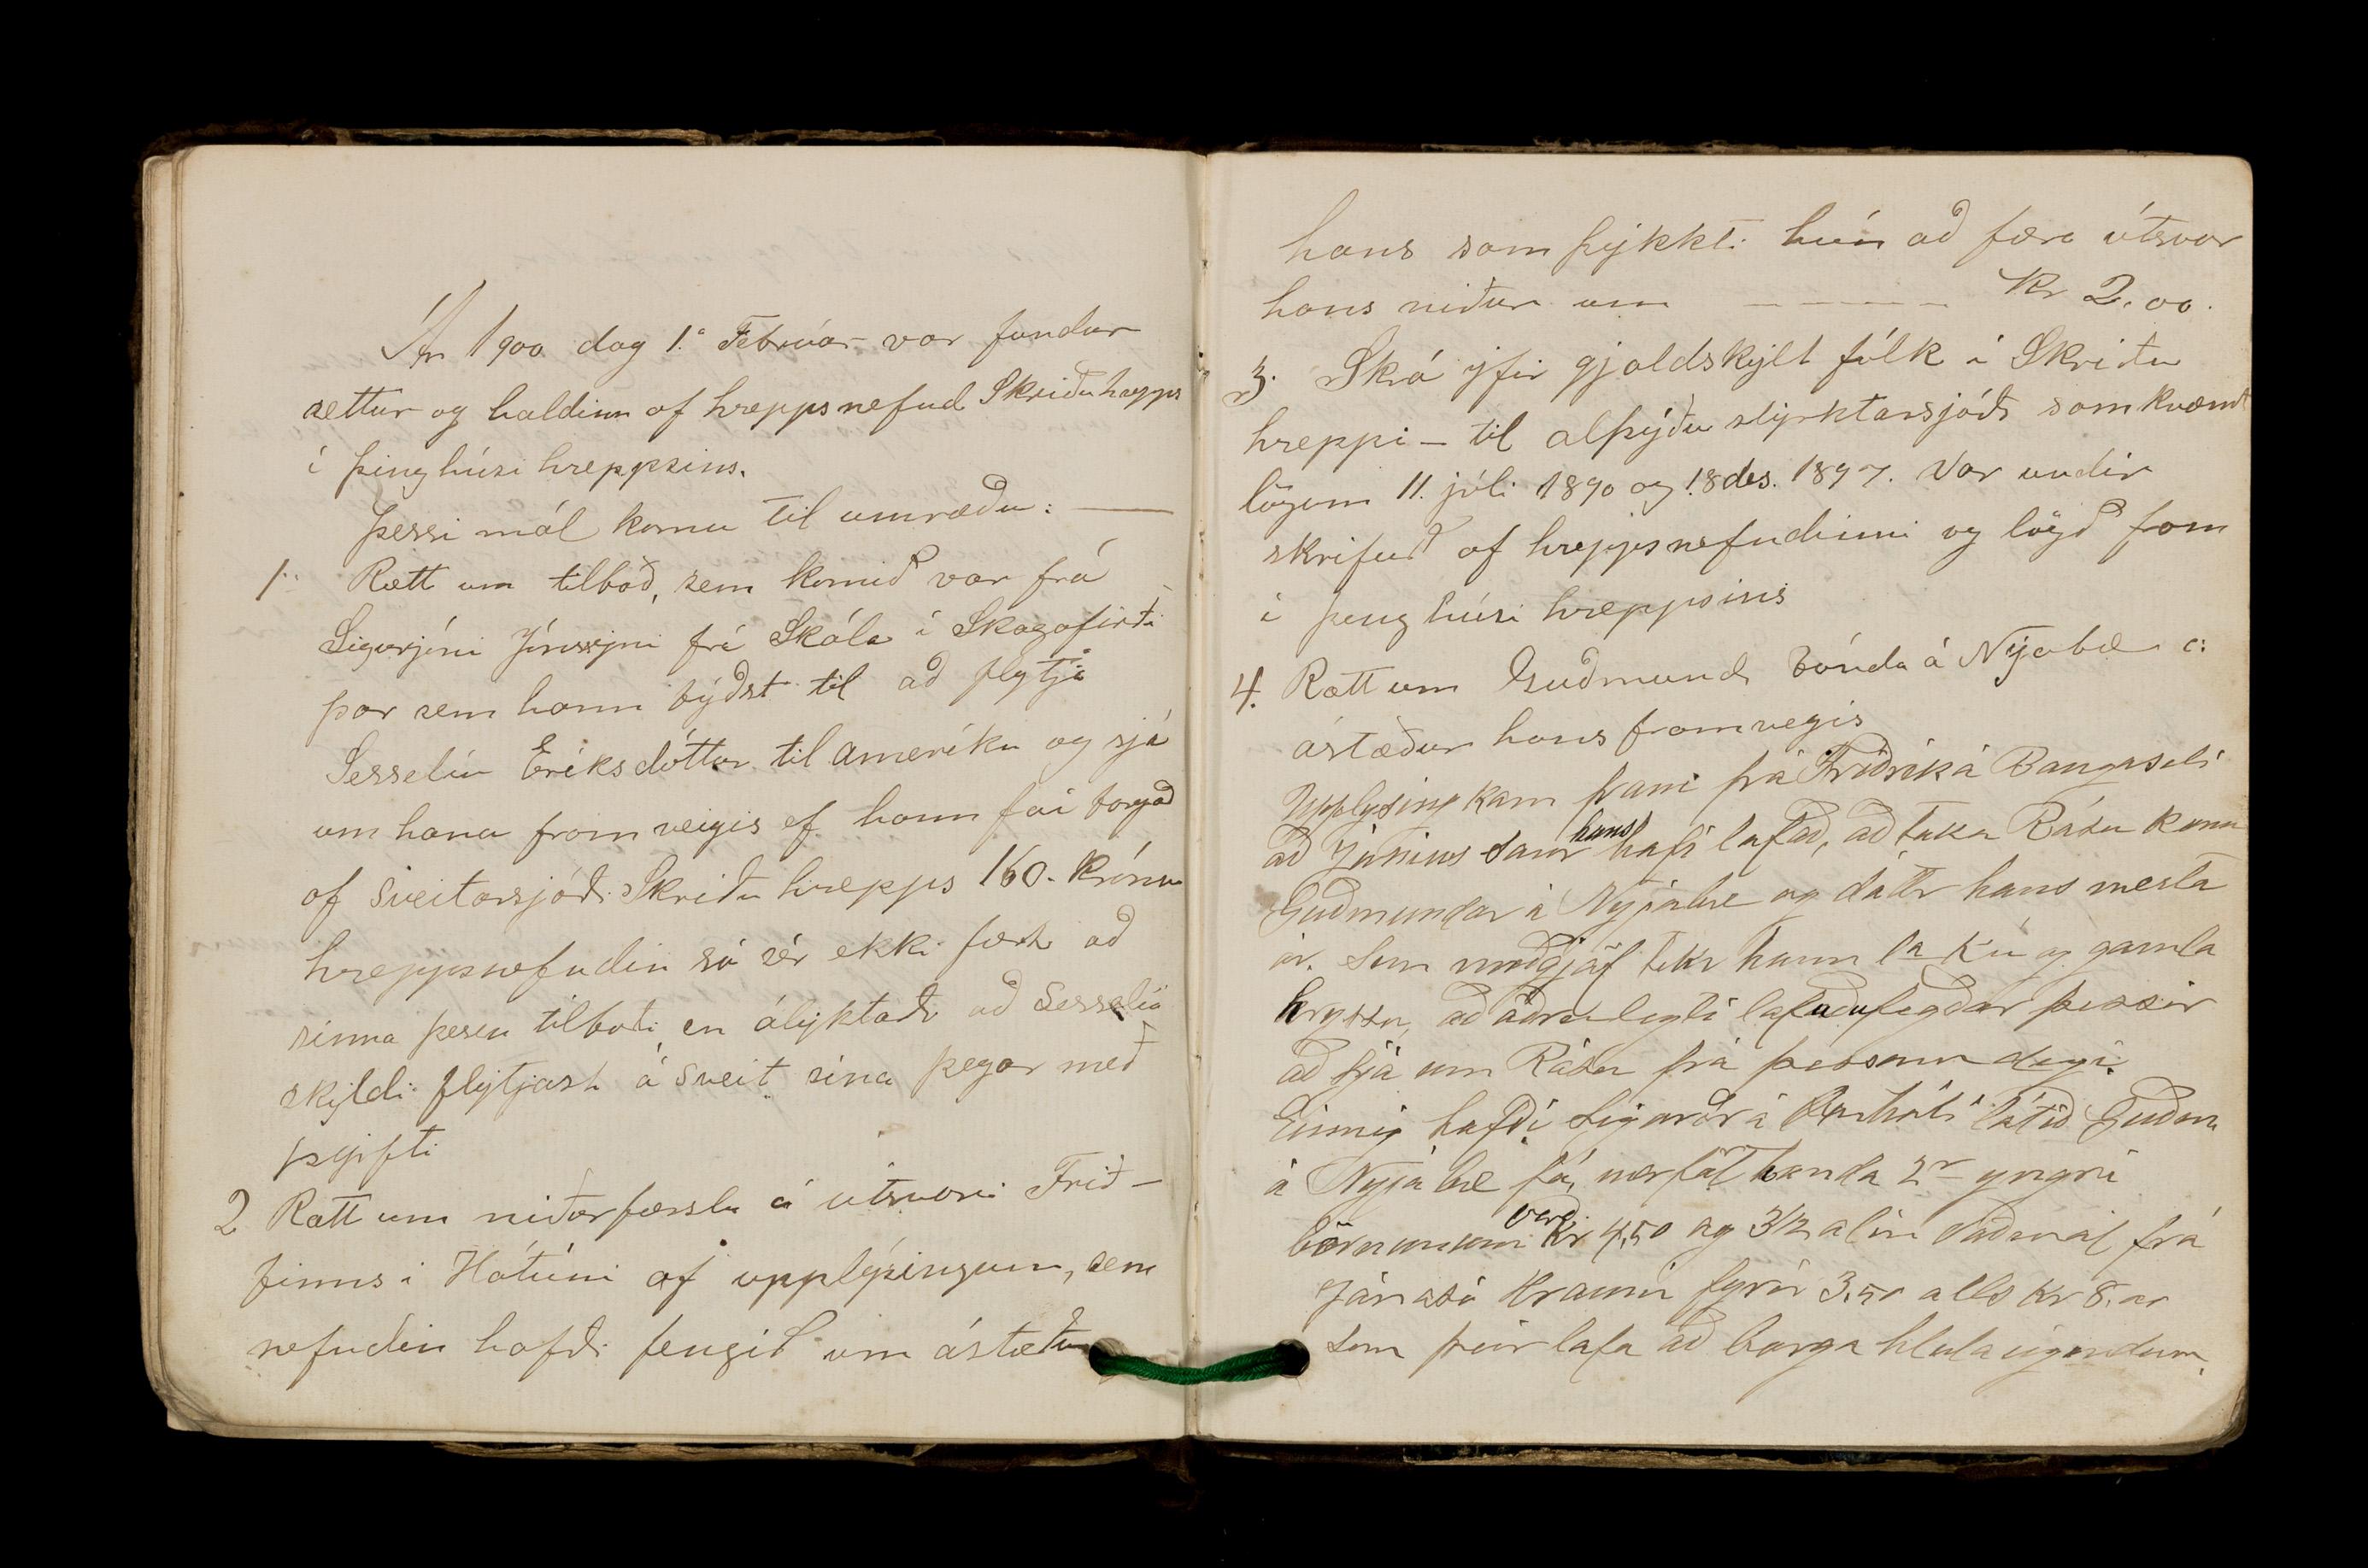 Ár 1900 dag 1. Febrúar var fundur
settur og haldinn af hreppsnefnd Skriðuhrepps
í þinghúsi hreppsins.
Þessi mál komu til umræðu: —
1. Rætt um tilboð, sem komið var frá
Sigurjóni Jónssyni frá Skála í Skagafirði
þar sem hann býðst til að flytja
Sesselíu Eriksdóttur til Ameríku og sjá
um hana framveigis ef hann fái borgað
af Sveitarsjóði Skriðuhrepps 160. krónu
hreppsnefndin sá sér ekki fært að
sinna þessu tilboði en ályktaði að Sesselía
skyldi flytjast á sveit sína þegar með
þgifti
2 Rætt um niðurfærslu á útsvari Frið-
finns í Hátúni af upplýsingum, sem
nefndin hafði fengið um ástæður
hans samþykkti hún að færa útsvar
hans niður um ----- Kr 2.00.
3. Skrá yfir gjaldskylt fólk í Skriðu
hreppi — til alþýðu styrktarsjóðs samkvæmt
lögum 11. júli 1890 og 18 des. 1897. Var undir
skrifuð af hreppsnefndinni og lögð fram
í þinghúsi hreppsins
4. Rætt um Guðmund bónda á Nýabæ c:
ástæður hans framvegis
Upplysing kam fram frá Friðrik á Bangaseli
að Június sanr hans hafi lafað, að taka Rásu kanu
Guðmundar á Nyjabæ og dáttr hans mesta
ár. Sem meðgjöf tekr hann 1a kú og gamla
hryssu, að áðru leyti lafaðu feðgar þessir
að sjá um Rásu frá þessum degi.
Einnig hafði Sigurðr á látið Guðm.
á Nyjabæ fá, nærföt handa 2r yngri
börnunum verð kr 4,50 og 3 1/2 alin vaðmál frá
Jánasi á Hrauni fyrir 3.50 alls Kr 8.00
Sem þeir lafa að barga hlutaeigendum.